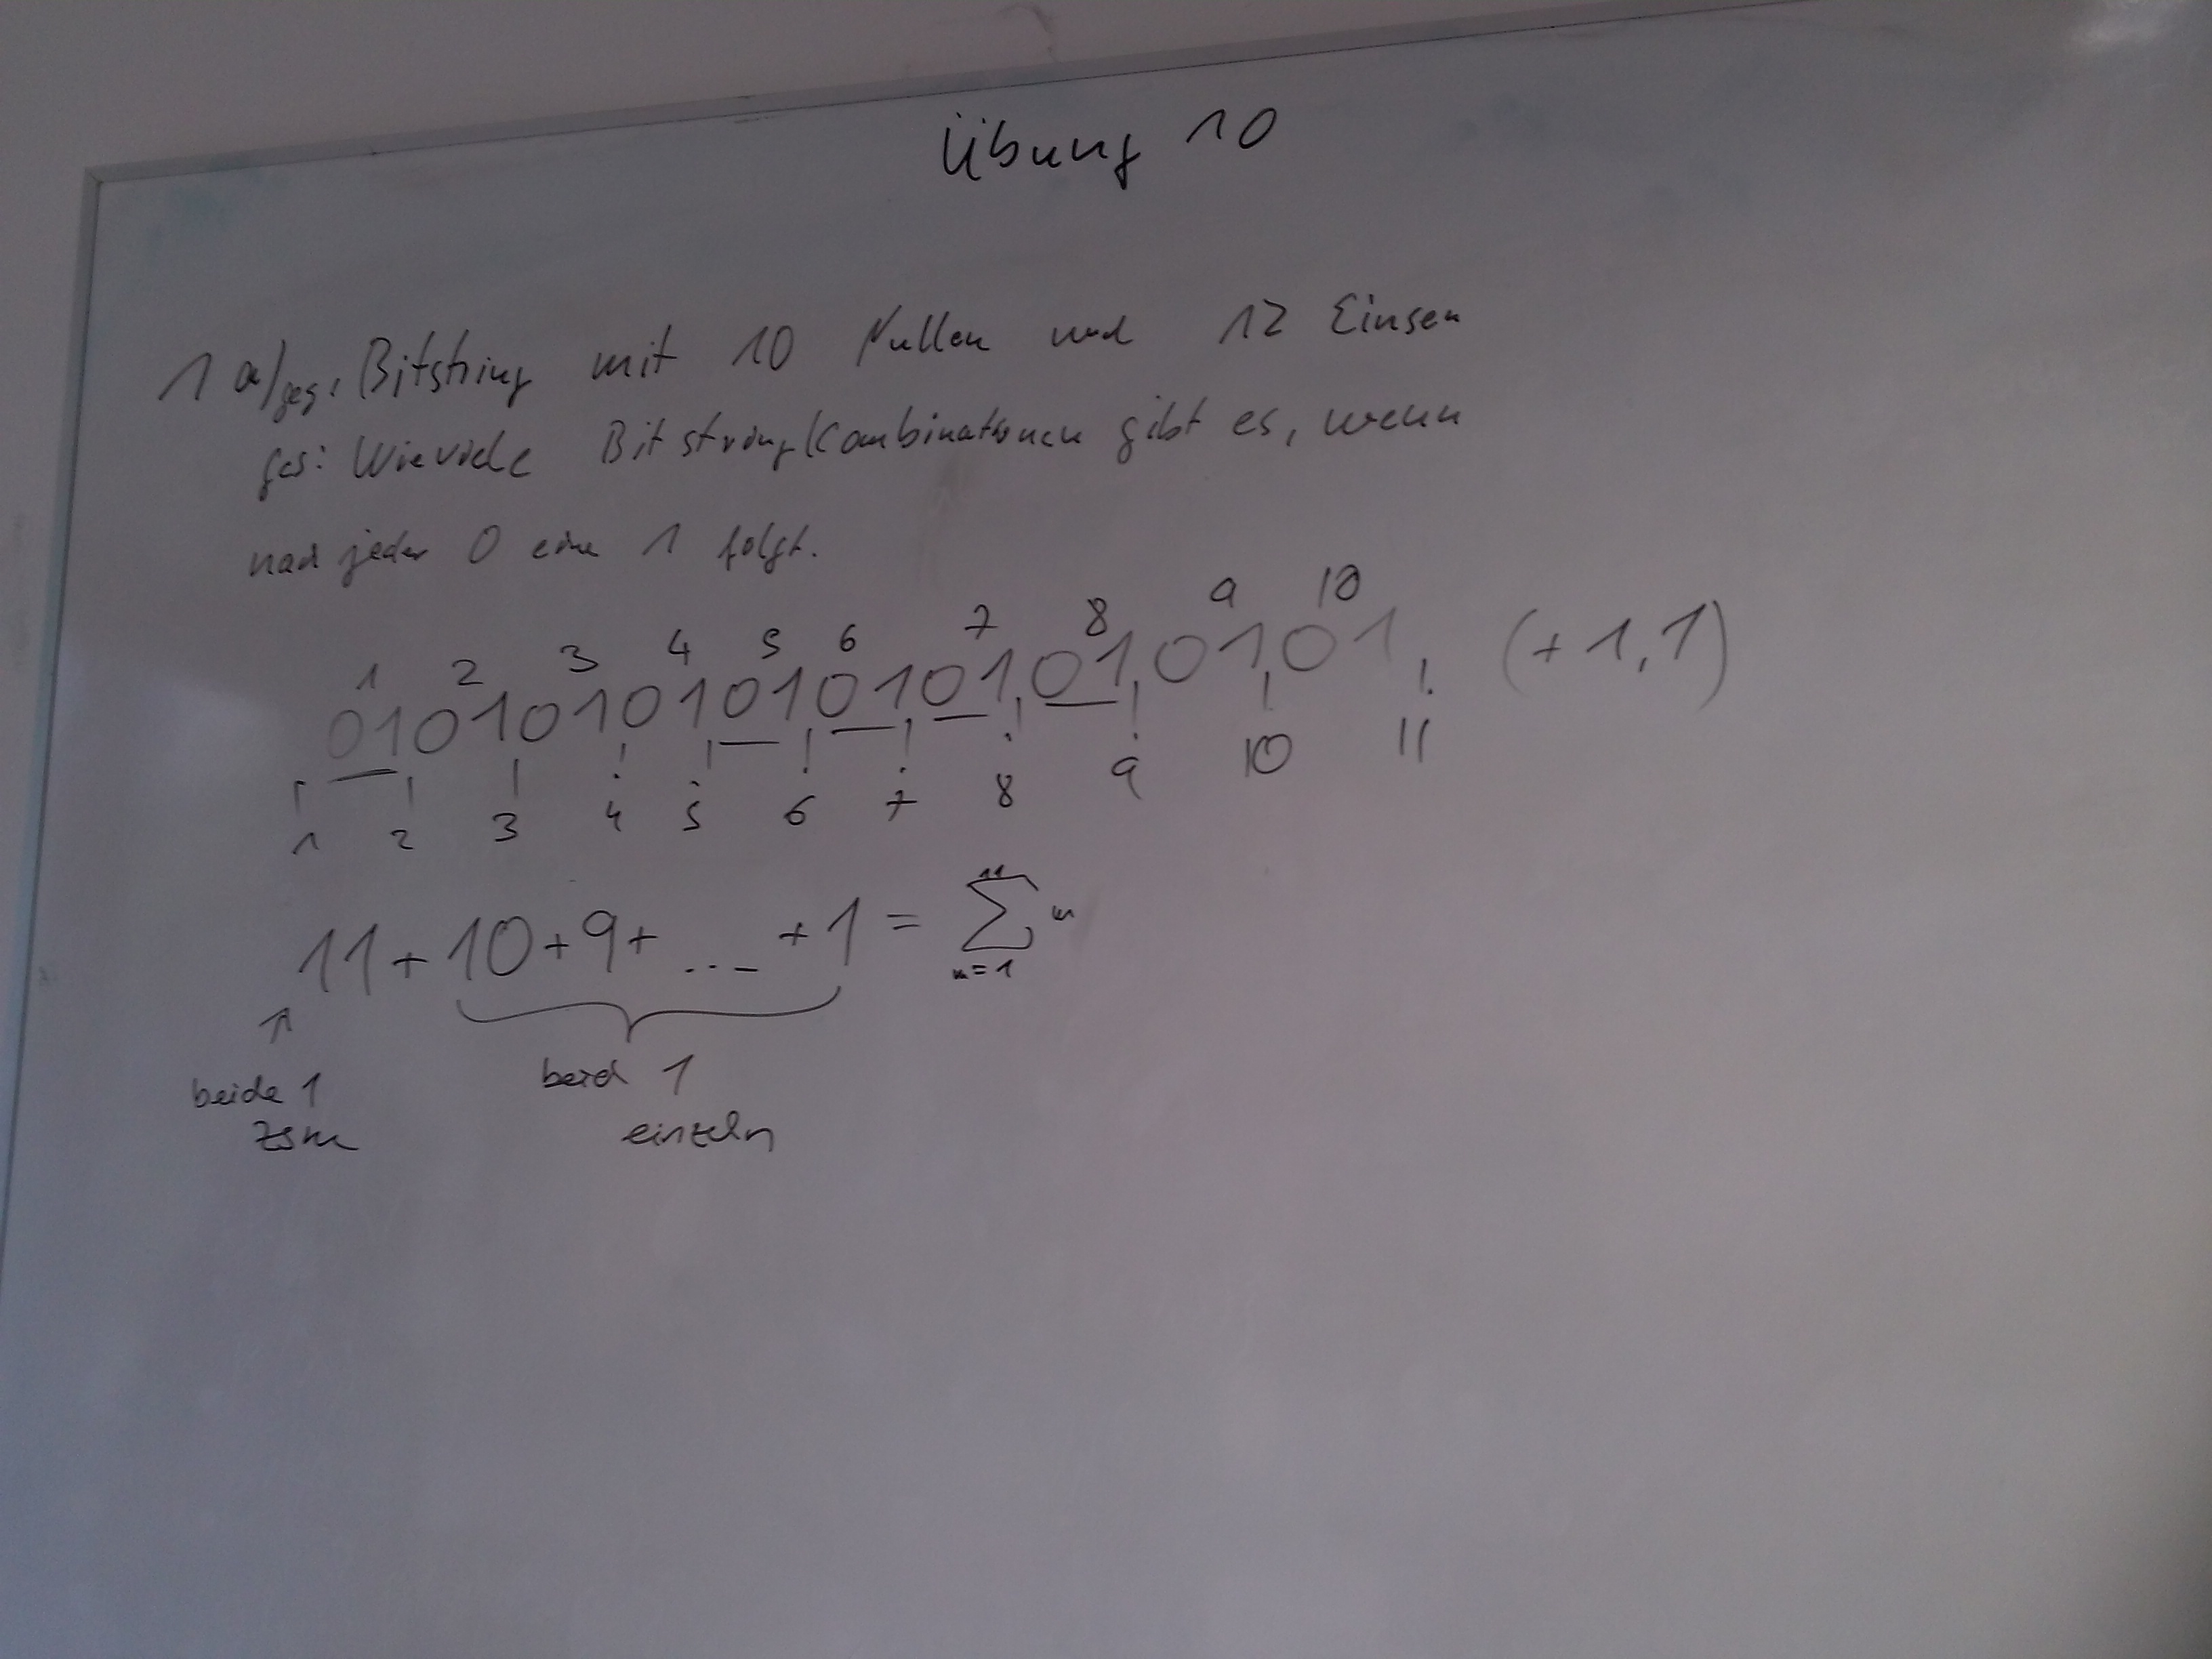 Übung 10
1 a/ geg: Bitstring mit 10 Nullen und 12 Einsen
ges: Wieviele Bitstring Kombinationen gibt es, wenn
nach jeder 0 eine 1 folgt.
1 2 3 4 5 6 7 8 9 10
01010101010101010101 (+1,1)
1 2 3 4 5 6 7 8 9 10 11
11+10+9+ ... +1 = ∑ n
11
n=1
beide 1 zsm
beide 1 einzeln